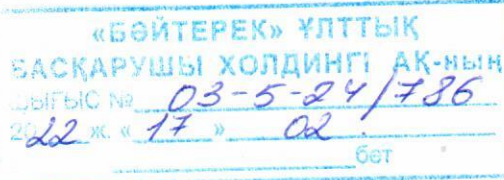 «БӘЙТЕРЕК» ҰЛТТЫҚ
БАСҚАРУШЫ ХОЛДИНГІ АҚ-ның
ШЫҒЫС № 03-5-24/786
2022 ж. « 17 » 02.
бет